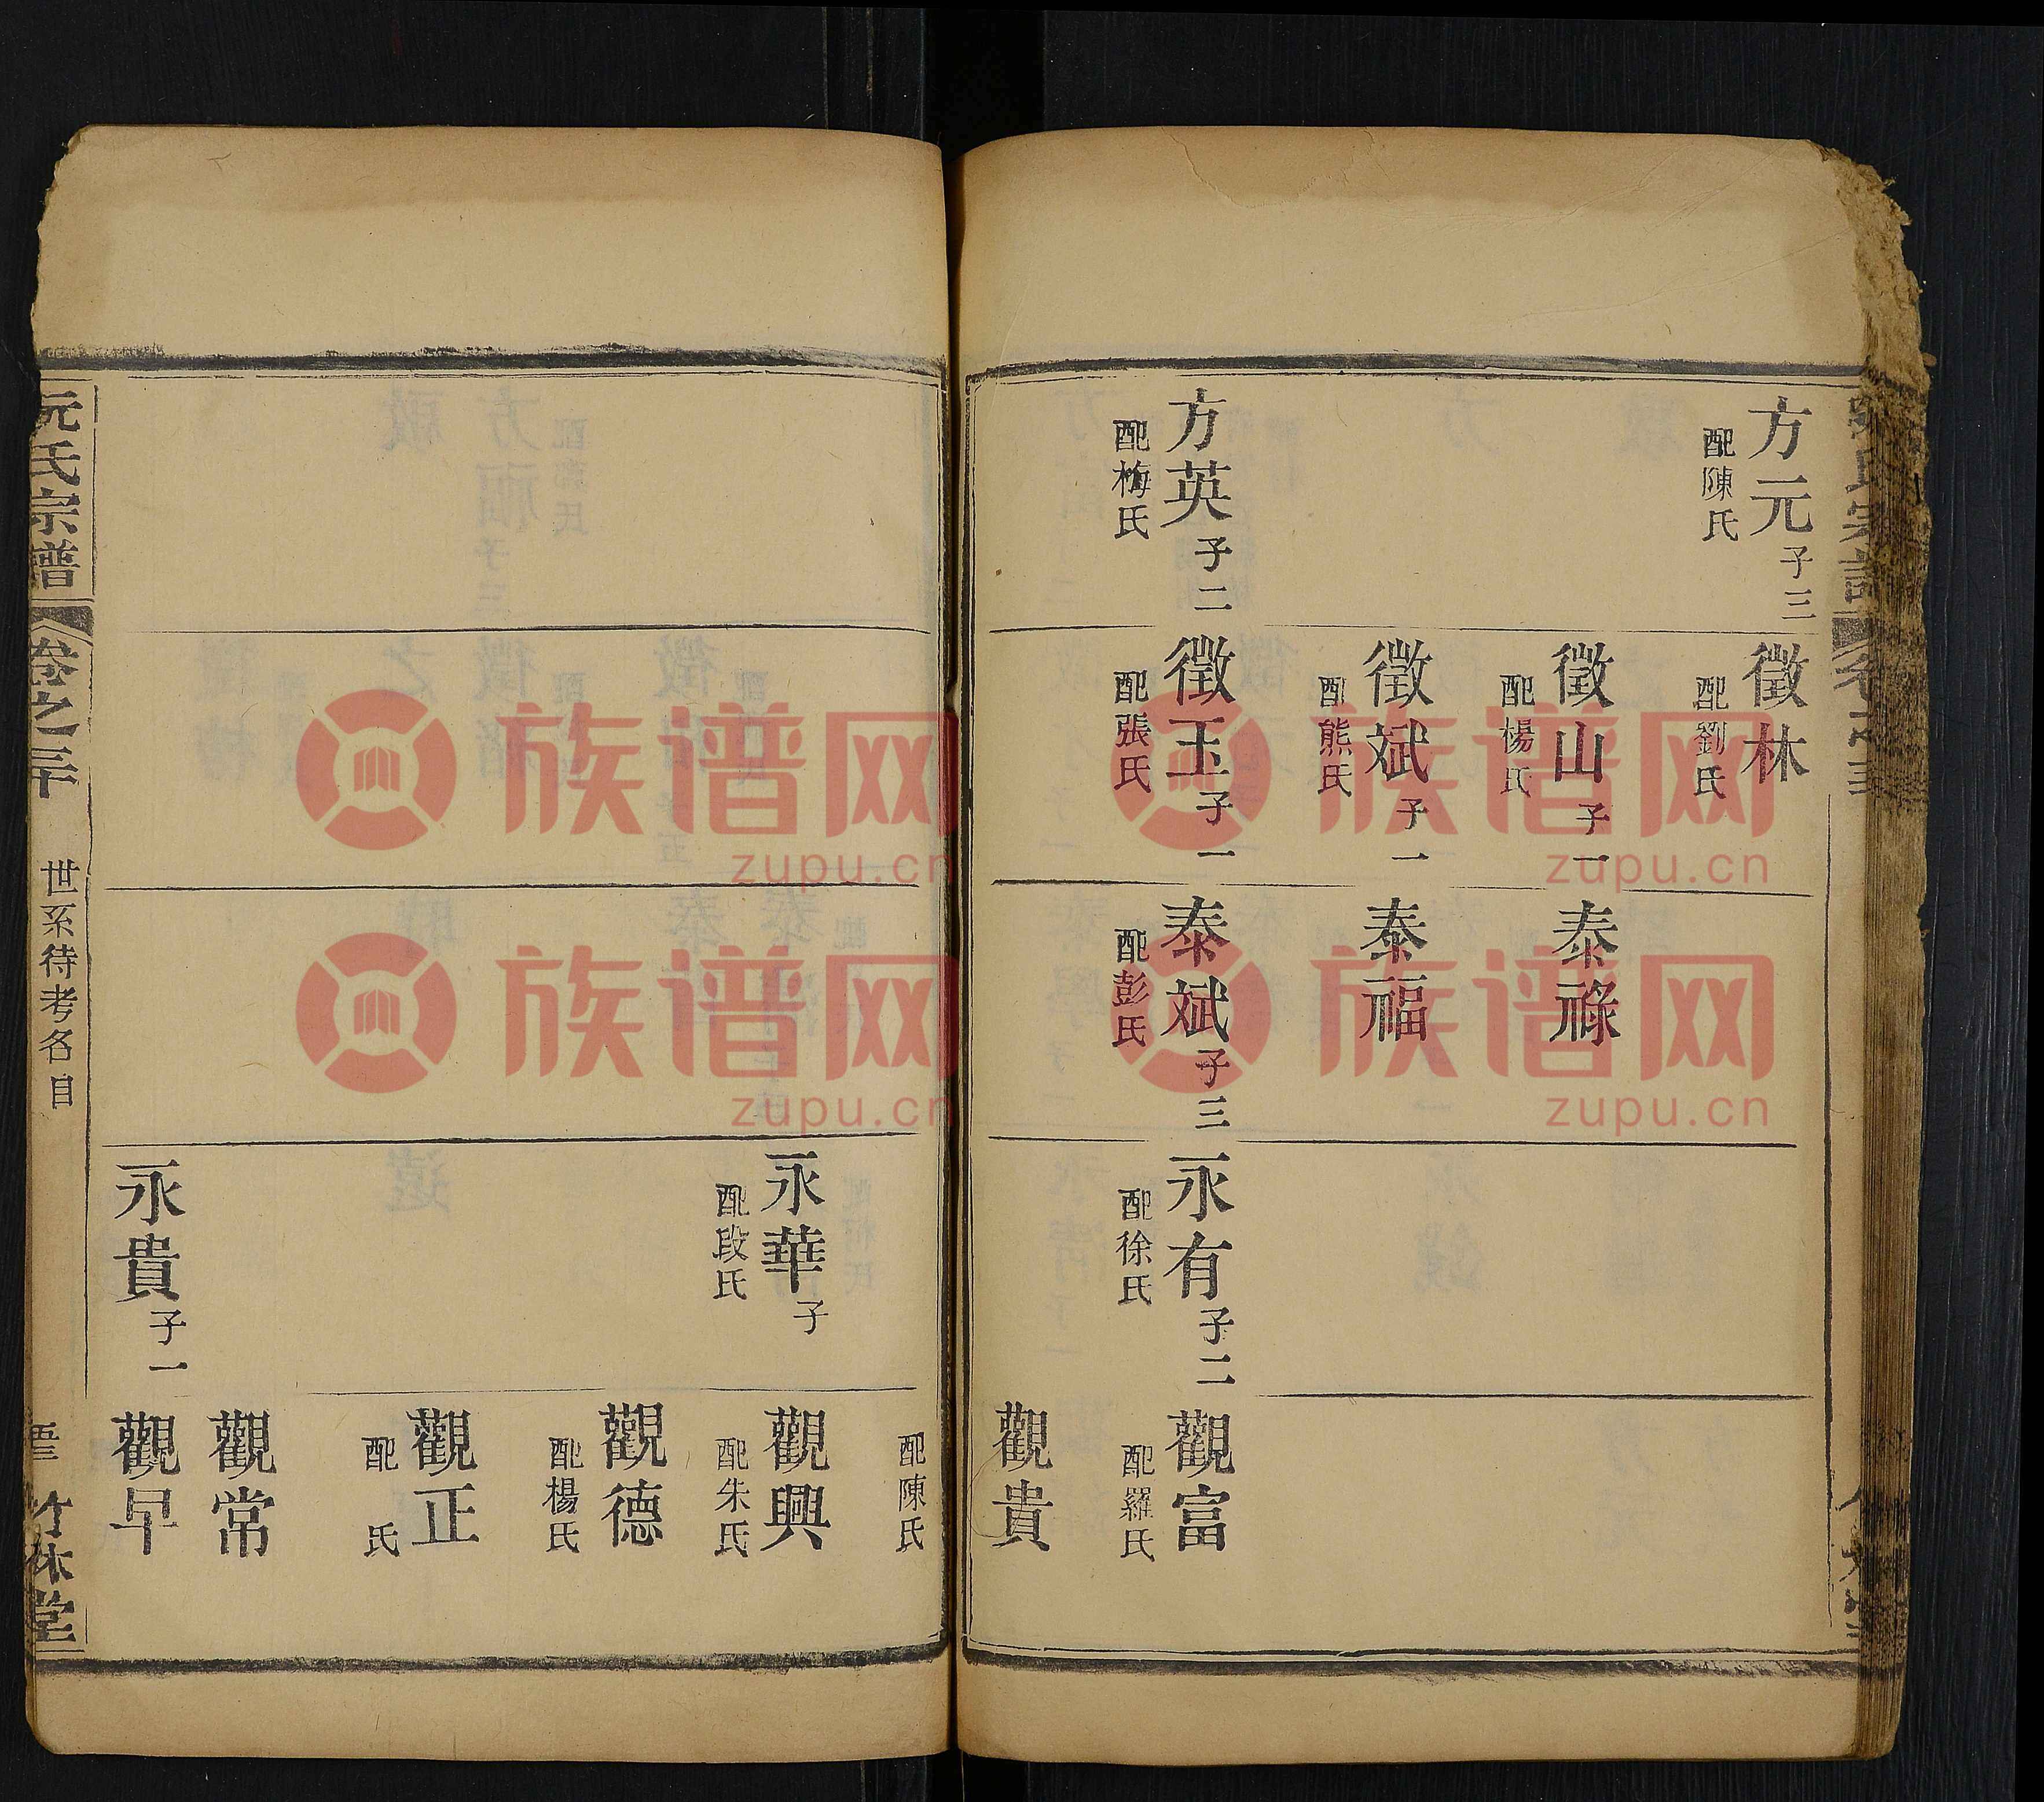 方元子三
配陳氏
方英子二
配梅氏
徵林
配劉氏
徵山子一
配楊氏
徵斌子一
配熊氏
徵玉子一
配張氏
泰祿
泰福
泰斌子三
配彭氏
永有子二
配徐氏
觀富
配羅氏
觀貴
配陳氏
永華子
配段氏
永貴子一
觀興
配朱氏
觀德
配楊氏
觀正
配 氏
觀常
觀早
阮氏宗譜
卷之三十
世系待考各目
竹林堂
族谱网
zupu.cn
族谱网
zupu.cn
族谱网
zupu.cn
族谱网
zupu.cn